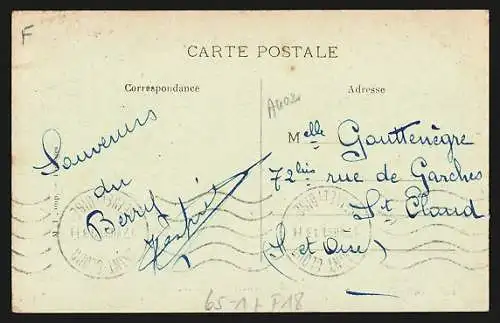 F
CARTE POSTALE
Correspondance
Adresse
Souvenirs
du
Berry
Melle Gouttenègre
72bis rue de Garches
St Cloud
(S et Oise)